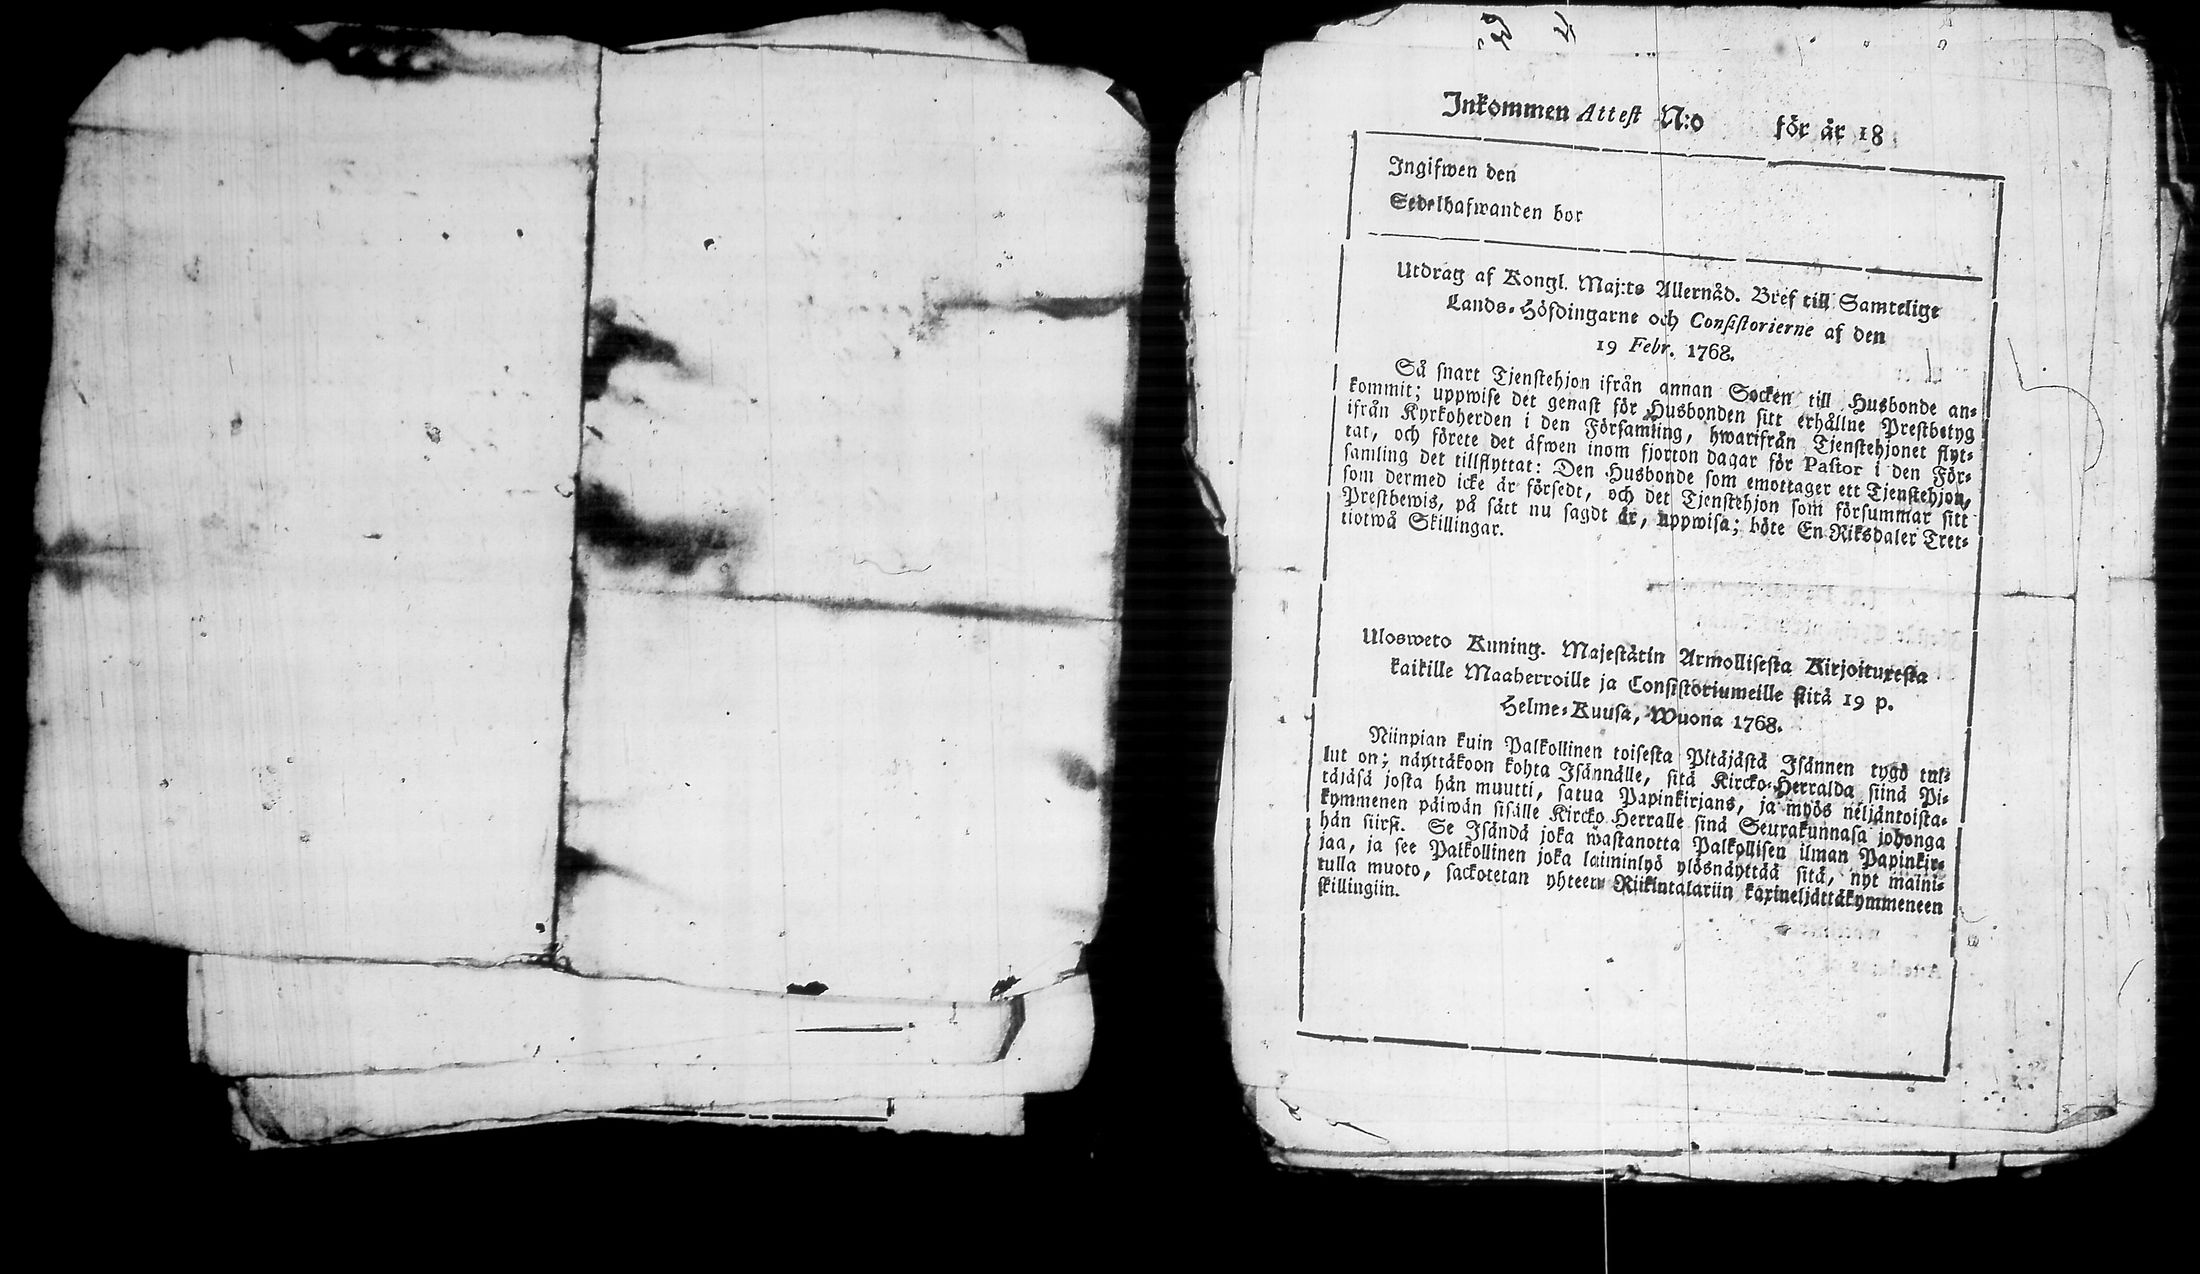 Inkommen Attest N:o för år 18
Ingifwen den
Sedelhafwanden bor
Utdrag af Kongl. Maj:ts Allernåd. Bref till Samtelige
Lands-Höfdingarne och Consistorierne af den
19 Febr. 1768.
Så snart Tjenstehjon ifrån annan Socken till Husbonde an-
kommit; uppwise det genast för Husbonden sitt erhållne Prestbetyg
ifrån Kyrkoherden i den Församling, hwarifrån Tjenstehjonet flyt-
tat, och förete det äfwen inom fjorton dagar för Pastor i den För-
samling det tillflyttat: Den Husbonde som emottager ett Tjenstehjon,
som dermed icke är försedt, och det Tjenstehjon som försummar sitt
Prestbewis, på sätt nu sagdt är, uppwisa; böte En Riksdaler Tret-
tiotwå Skillingar.
Ulosweto Kuning. Majestätin Armollisesta Kirjoituxesta
kaikille Maaherroille ja Consistoriumeille siitä 19 p.
Helme-Kuusa, Wuona 1768.
Niinpian kuin Palkollinen toisesta Pitäjästä Isännen tygö tul-
lut on; näyttäkoon kohta Isännälle, sitä Kircko-Herralda siinä Pi-
täjäsä josta hän muutti, satua Papinkirjans, ja myös neljäntoista-
kymmenen päiwän sisälle Kircko Herralle sinä Seurakunnasa johonga
hän siirsi. Se Isändä joka wastanotta Palkollisen ilman Papinkir-
jaa, ja see Palkollinen joka laiminlyö ylösnäyttää sitä, nyt maini-
tulla muoto, sackotetan yhteen Riikintalariin kaxineljättäkymmeneen
skillingiin.